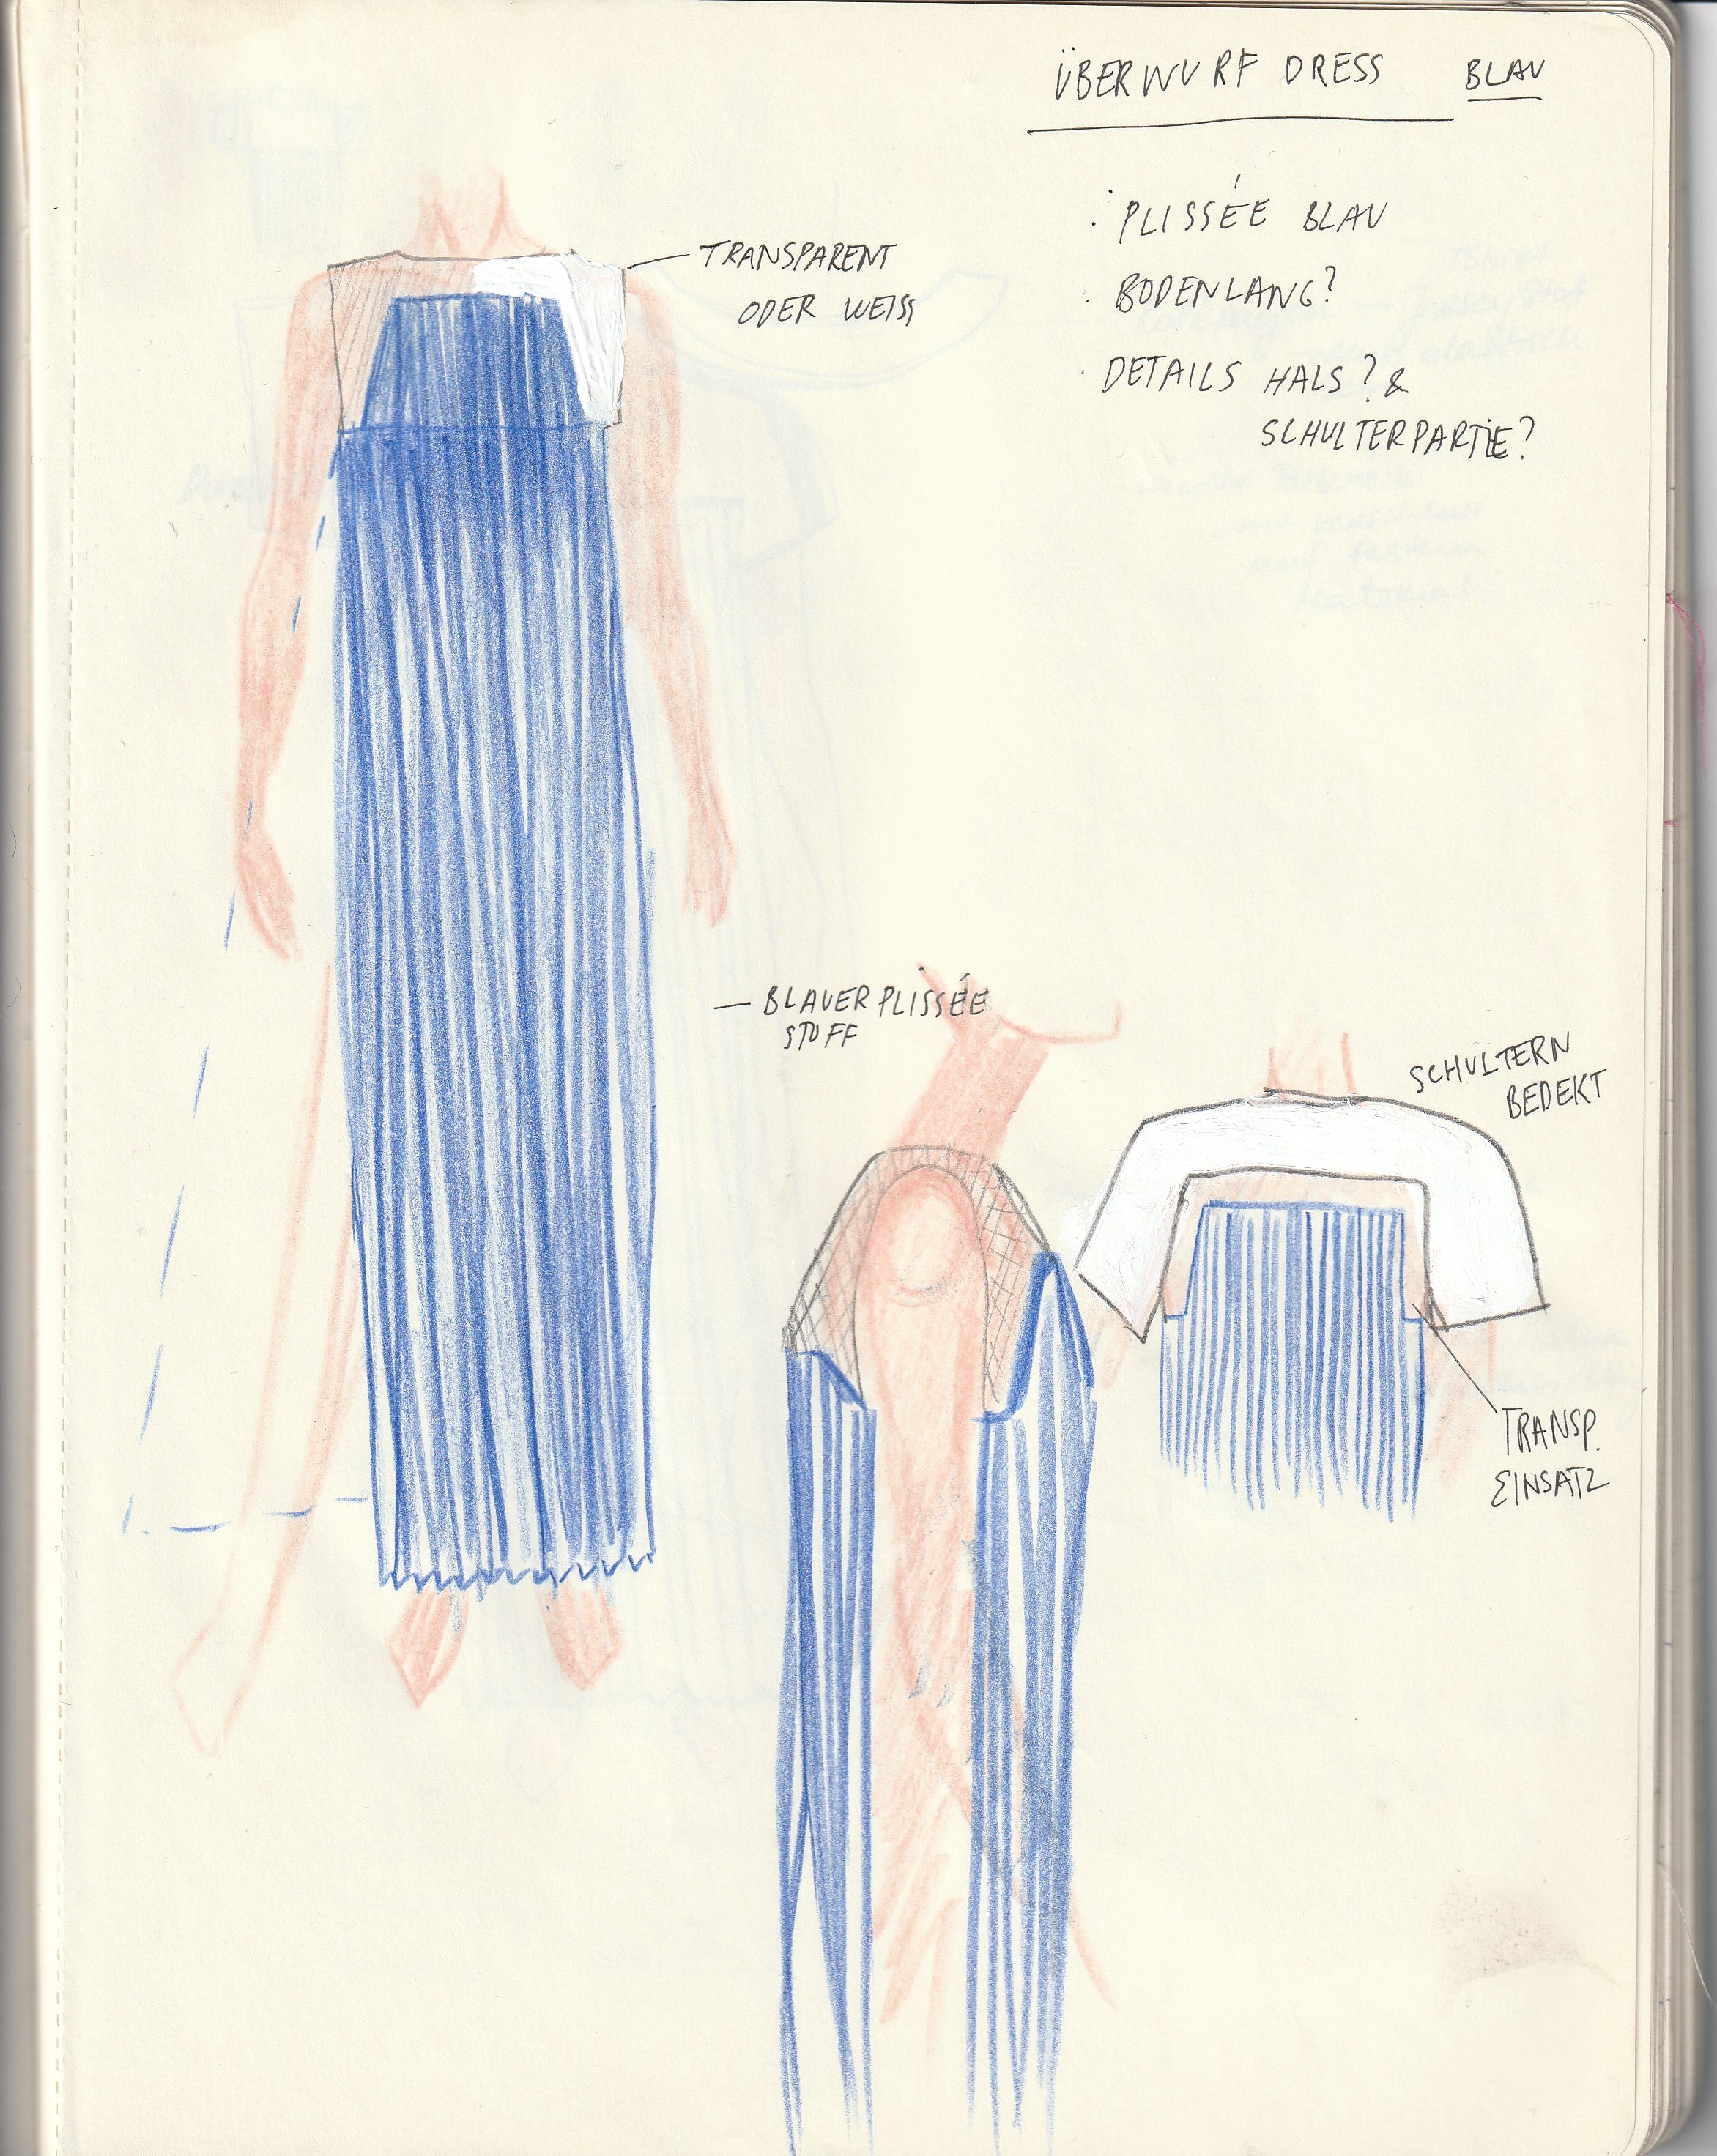 ÜBERWURF DRESS BLAU
· PLISSÉE BLAU
· BODENLANG?
· DETAILS HALS? &
SCHULTERPARTIE?
TRANSPARENT
ODER WEISS
BLAUER PLISSÉE
STOFF
SCHULTERN
BEDEKT
TRANSP.
EINSATZ